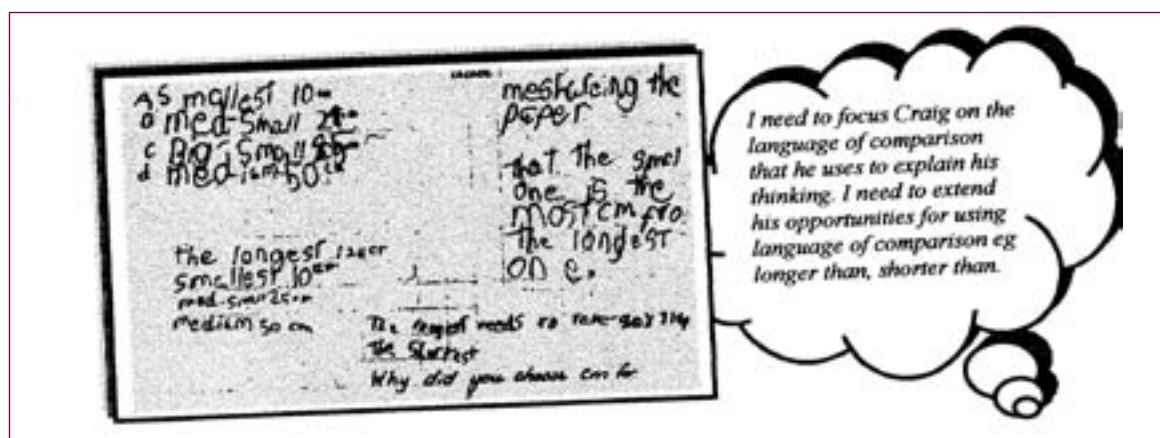 A smallest 10cm
B med-small
C Big-small
d medium 50cm
the longest
smallest 10cm
med-small 25cm
medium 50 cm
the
paper
that the smal
one is the
most cm fro
the longest
one.
The longest needs to
the shortest
Why did you choose cm for
I need to focus Craig on the
language of comparison
that he uses to explain his
thinking. I need to extend
his opportunities for using
language of comparison eg
longer than, shorter than.